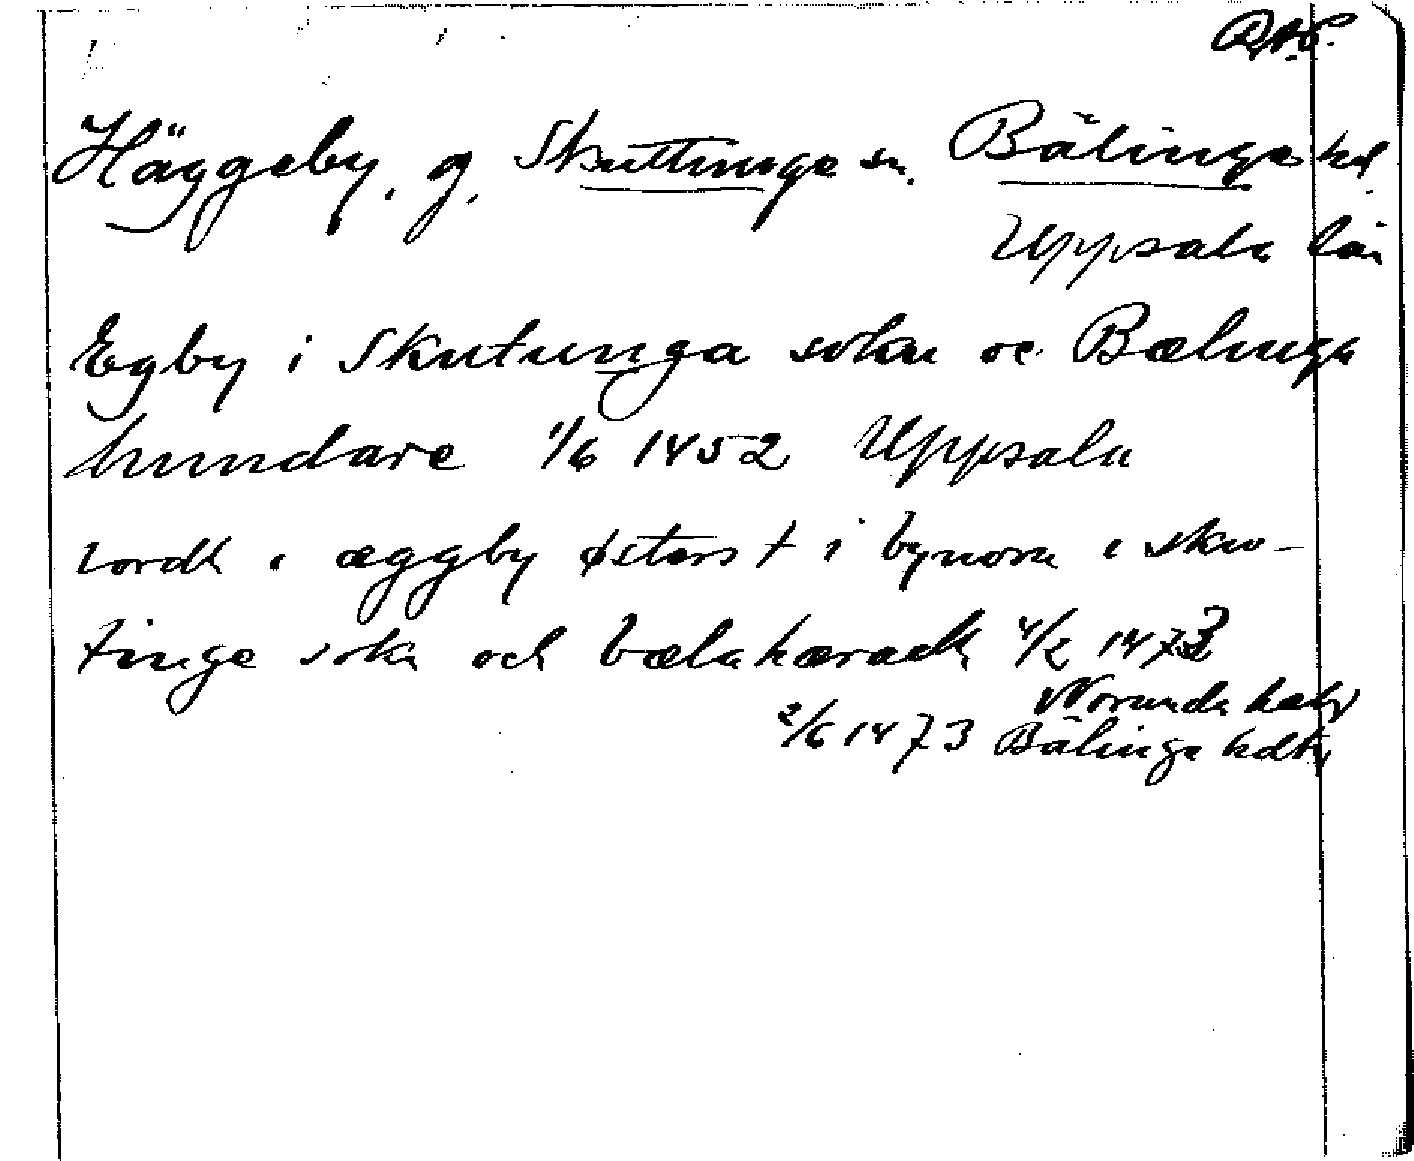 RAP.
Häggeby, g. Skuttunge sn. Bälinge hd.
Uppsala län
Egby i Skutunga sokn oc Bælinga
hundare 1/6 1452 Uppsala
iordh i æggby østerst i bynom i sku-
tinge sokn och bælahæradh 4/2 1473
Norunda hdtg
2/6 1473 Bälinge hdtg